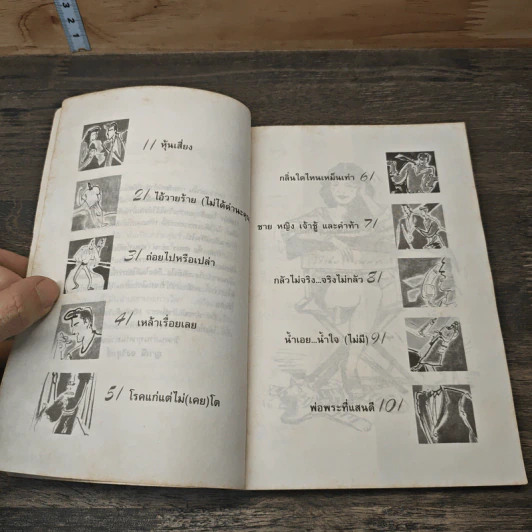 3 2 1
11 หุ้นเสี่ยง
21 ไอ้วายร้าย (ไม่ได้ด่านะคุณ
31 ถ่อยไปหรือเปล่า
41 เหล้าเรื่อยเลย
51 โรคแก่แต่ไม่(เคย)โต
กลิ่นใดไหนเหม็นเท่า 61
ชาย หญิง เจ้าชู้ และคำท้า 71
กลัวไม่จริง...จริงไม่กลัว 81
น้ำเอย...น้ำใจ (ไม่มี) 91
พ่อพระที่แสนดี 101